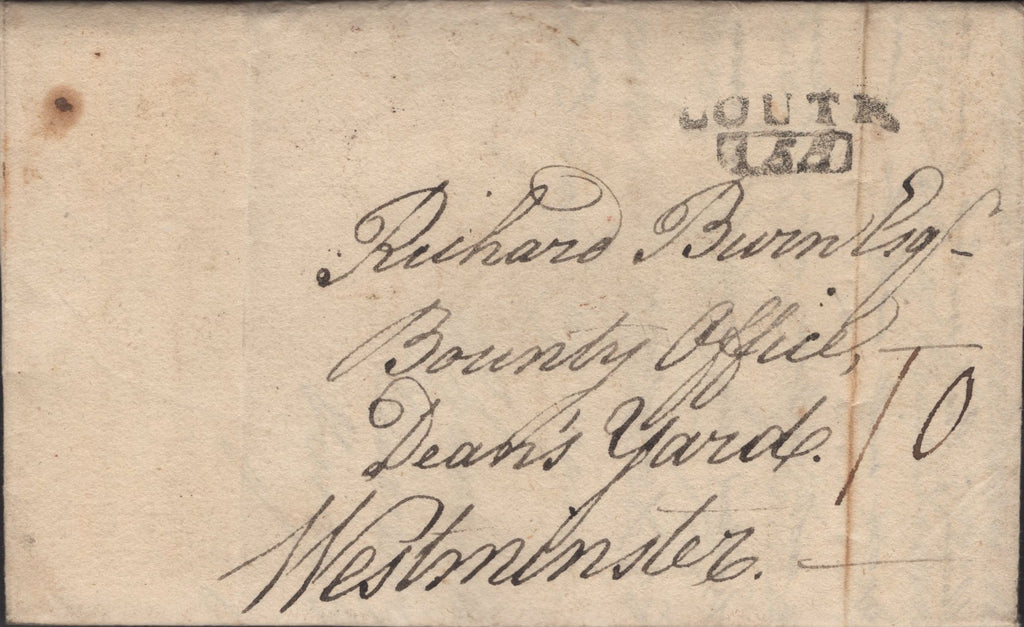 LOUTH
154
Richard Burn Esqr
Bounty Office,
Dean's Yard.
10
Westminster.